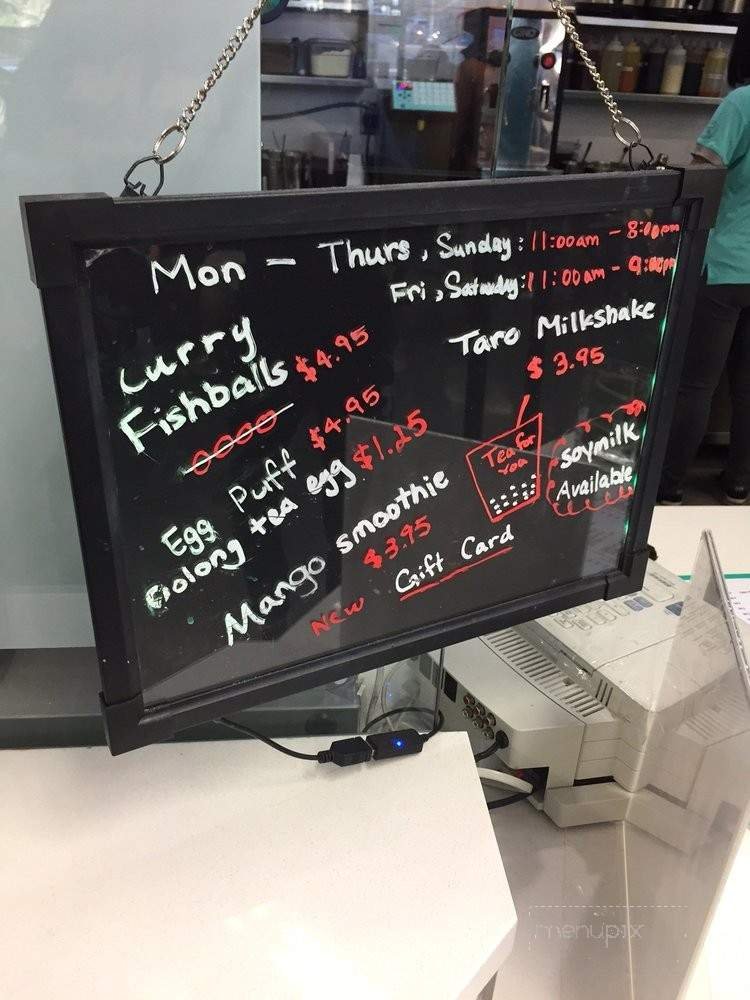 Mon - Thurs, Sunday: 11:00am - 8:00pm
Fri, Saturday: 11:00am - 9:00pm
Curry Fishballs $4.95
Taro Milkshake
$3.95
Egg Puff $4.95
Oolong tea egg $1.25
Tea for
You
soymilk
Available
Mango smoothie
$3.95
New Gift Card
menupix